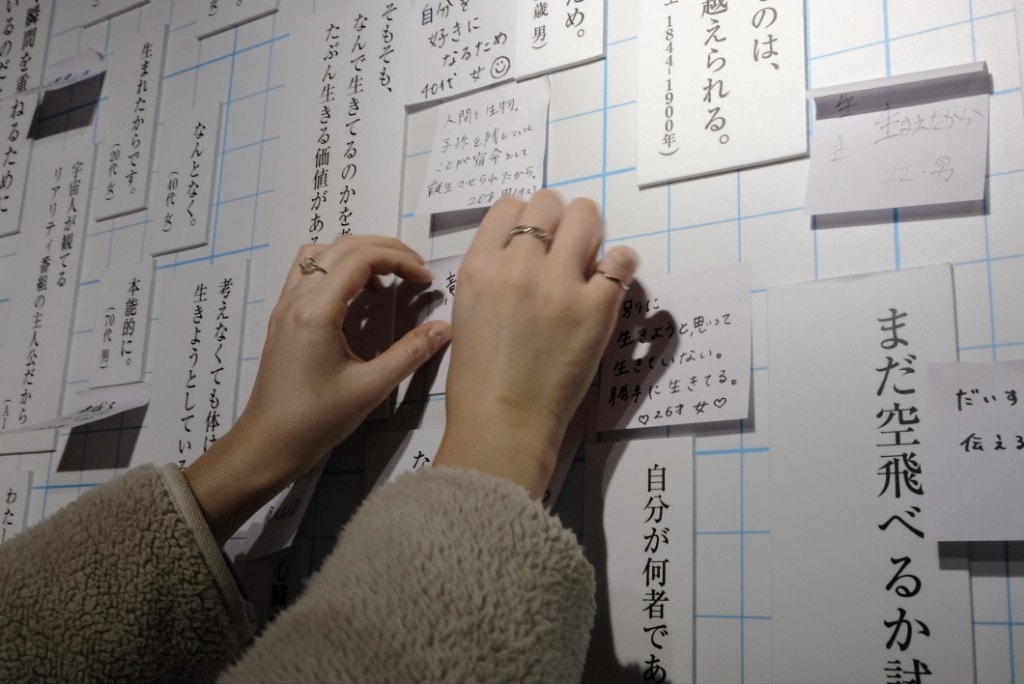 瞬間を重ねるために
生まれたからです。
(20代 女)
なんとなく。
(40代 女)
宇宙人が観てる
リアリティ番組の主人公だから
本能的に。
(70代 男)
考えなくても体は
生きようとしている
わたし
そもそも、
なんで生きてるのかを考
たぶん生きる価値がある
自分を
好きに
なるため
40代 女☺
人間も生物。
子孫を残していく
ことが宿命として
誕生させられたから。
20才 男
歳 男)
ため。
のは、
越えられる。
1844-1900年)
生まれたから
22.男
別に
生きようと思って
生きていない。
勝手に生きてる。
♡26才 女♡
自分が何者であ
まだ空飛べるか試
だいす
伝える
心臓